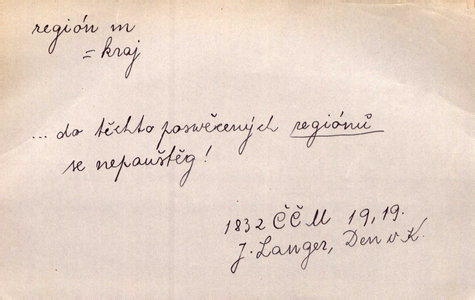 región m
= kraj
... do těchto poswěcených regiónů
se nepauštěg!
1832 ČČM 19,19.
J. Langer, Den v K.